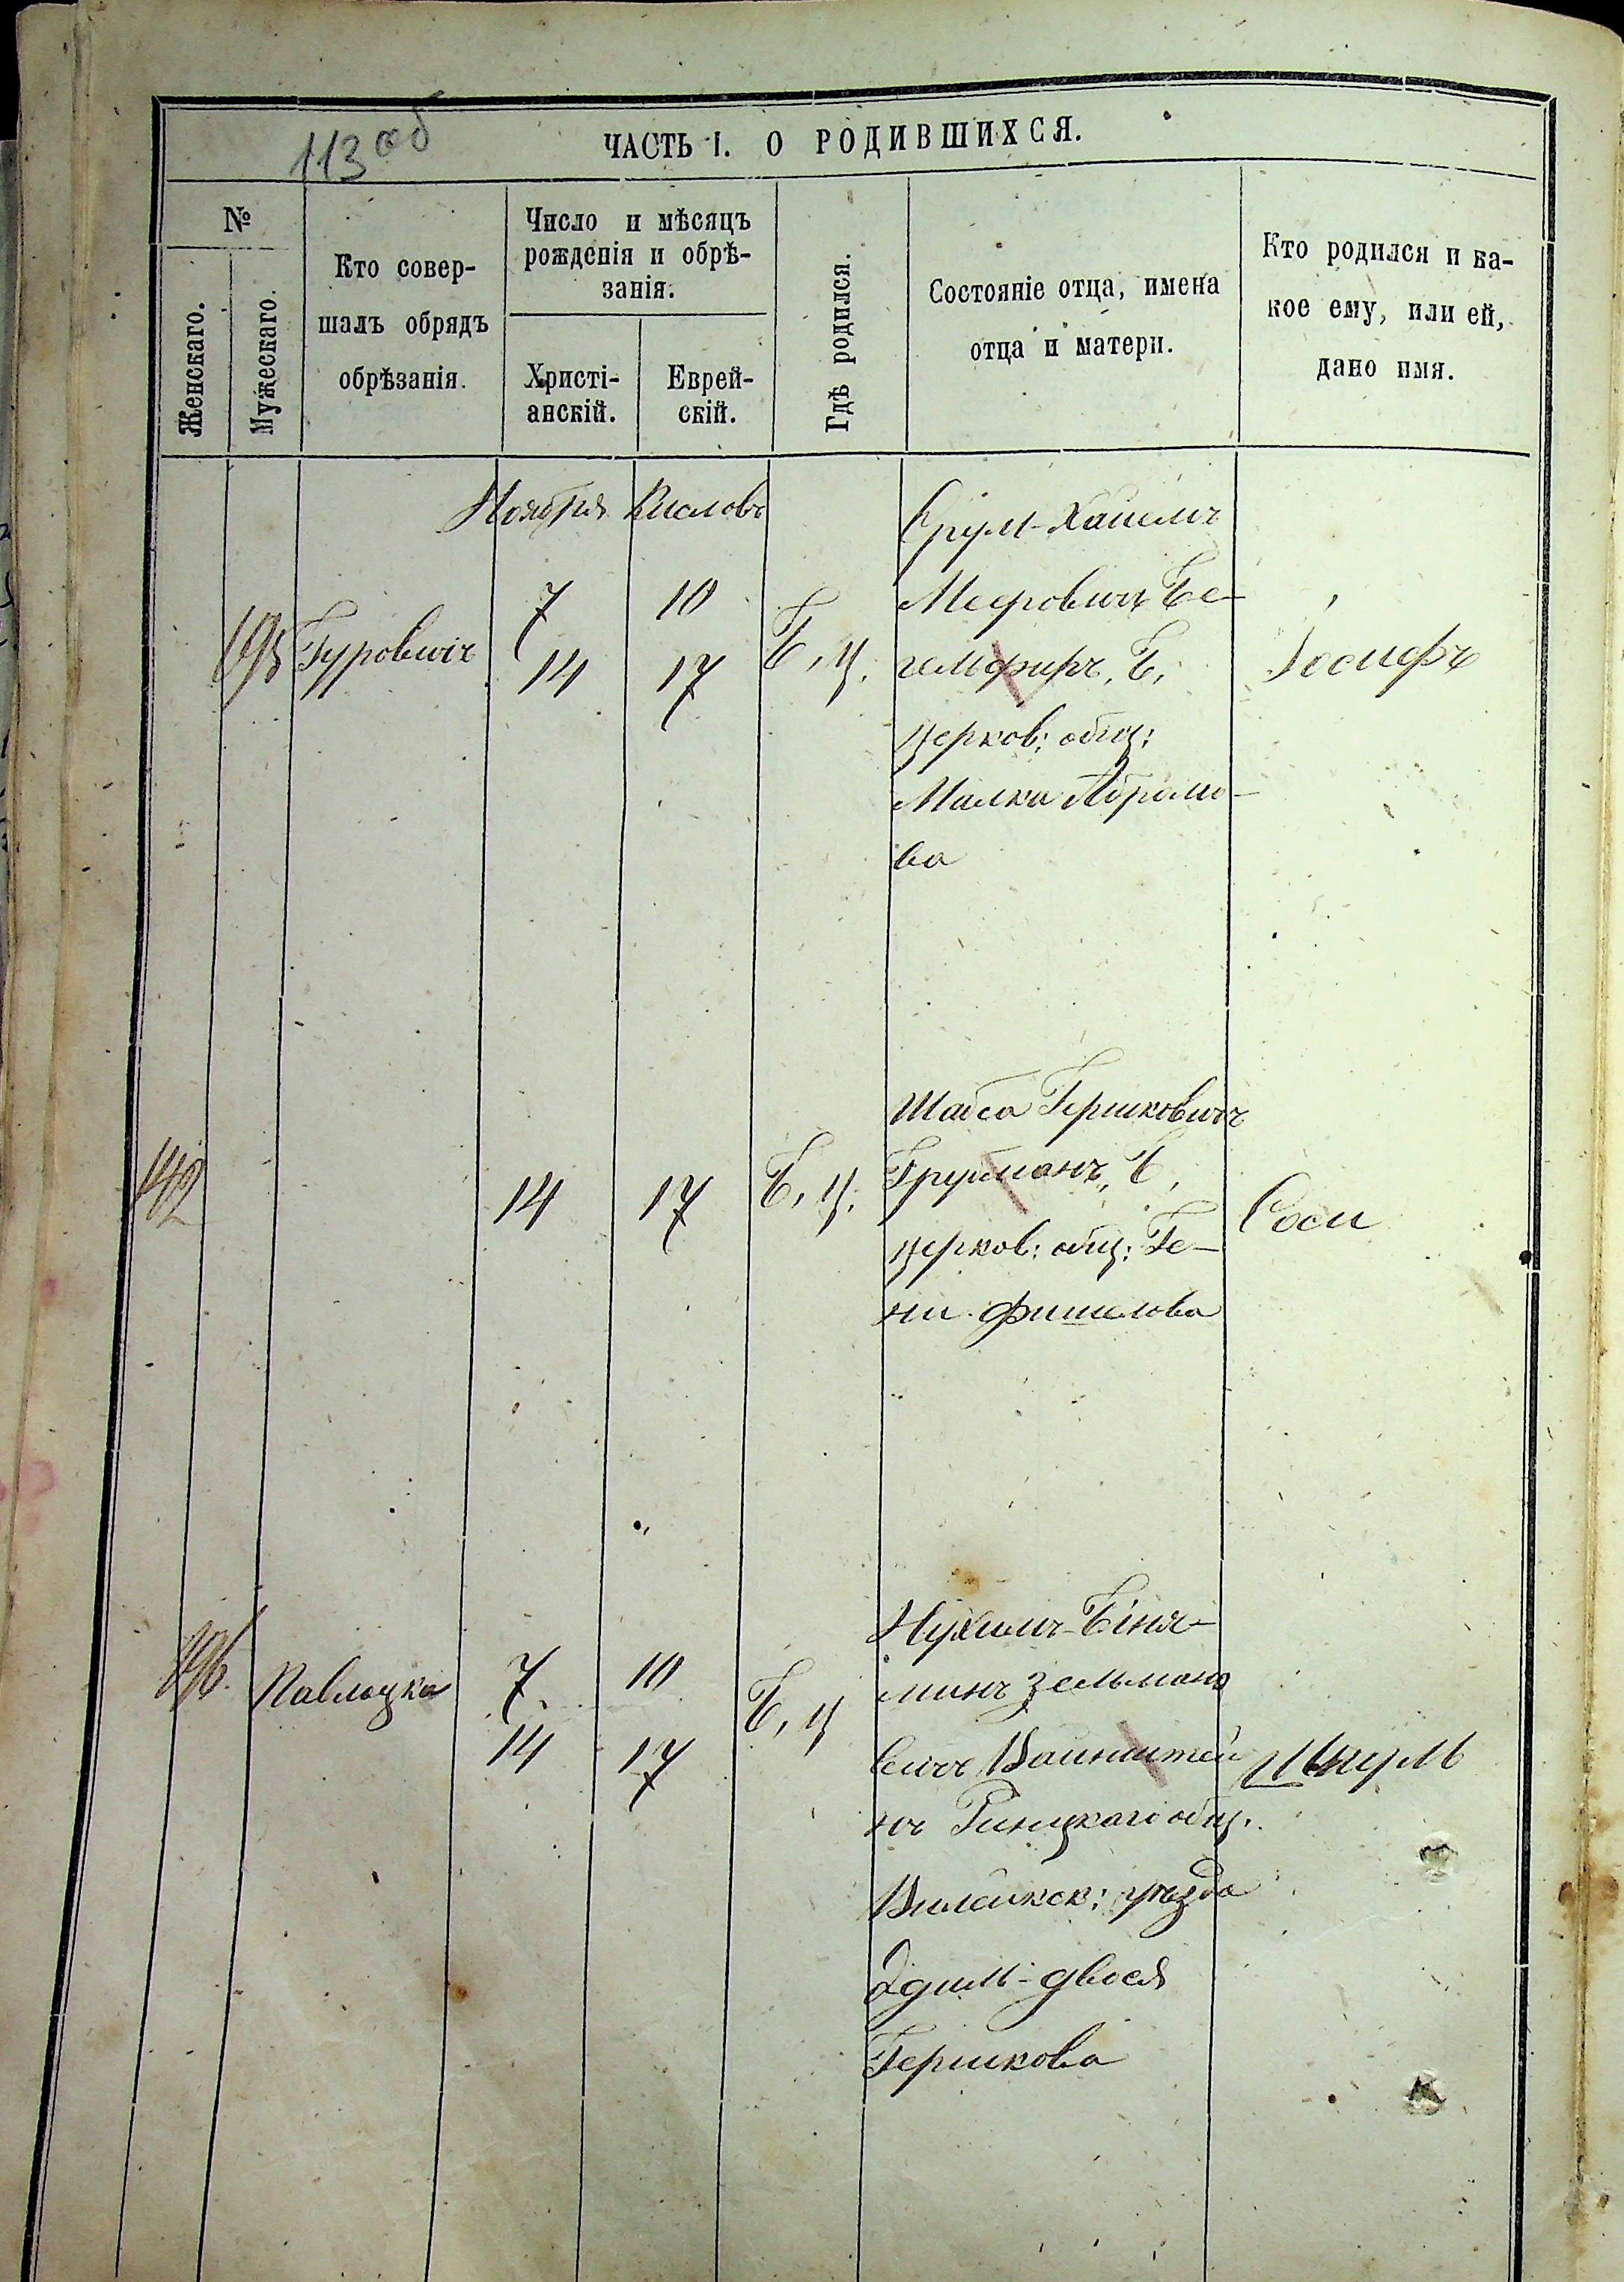 113 об
ЧАСТЬ I. О РОДИВШИХСЯ.
№
Женскаго.
Мужескаго.
Кто совер-
шалъ обрядъ
обрѣзанія.
Число и мѣсяцъ
рожденія и обрѣ-
занія.
Христі-
анскій.
Еврей-
скій.
Гдѣ родился.
Состояніе отца, имена
отца и матери.
Кто родился и ка-
кое ему, или ей,
дано имя.
Ноября Кислевъ
195 Гуровичъ
7 10
14 17
Б, ц.
Срул-Хаимъ
Мееровичъ Бе-
гельфиръ, Б,
церков: общ:
Малка Абрамо-
ва
Іосифъ
142
14 17
Б, ц.
Шабса Гершковичъ
Груйманъ, Б,
церков: общ: Ге-
ни Фишелова
Соси
196.
Павлоцка
7 10
14 17
Б, ц
Нухимъ-Бинъ-
минъ Зельмано
вичъ Вайнштей
нъ общ.
Вилейкск: уѣзда
Эдиль-Двося
Гершкова
Шмуль